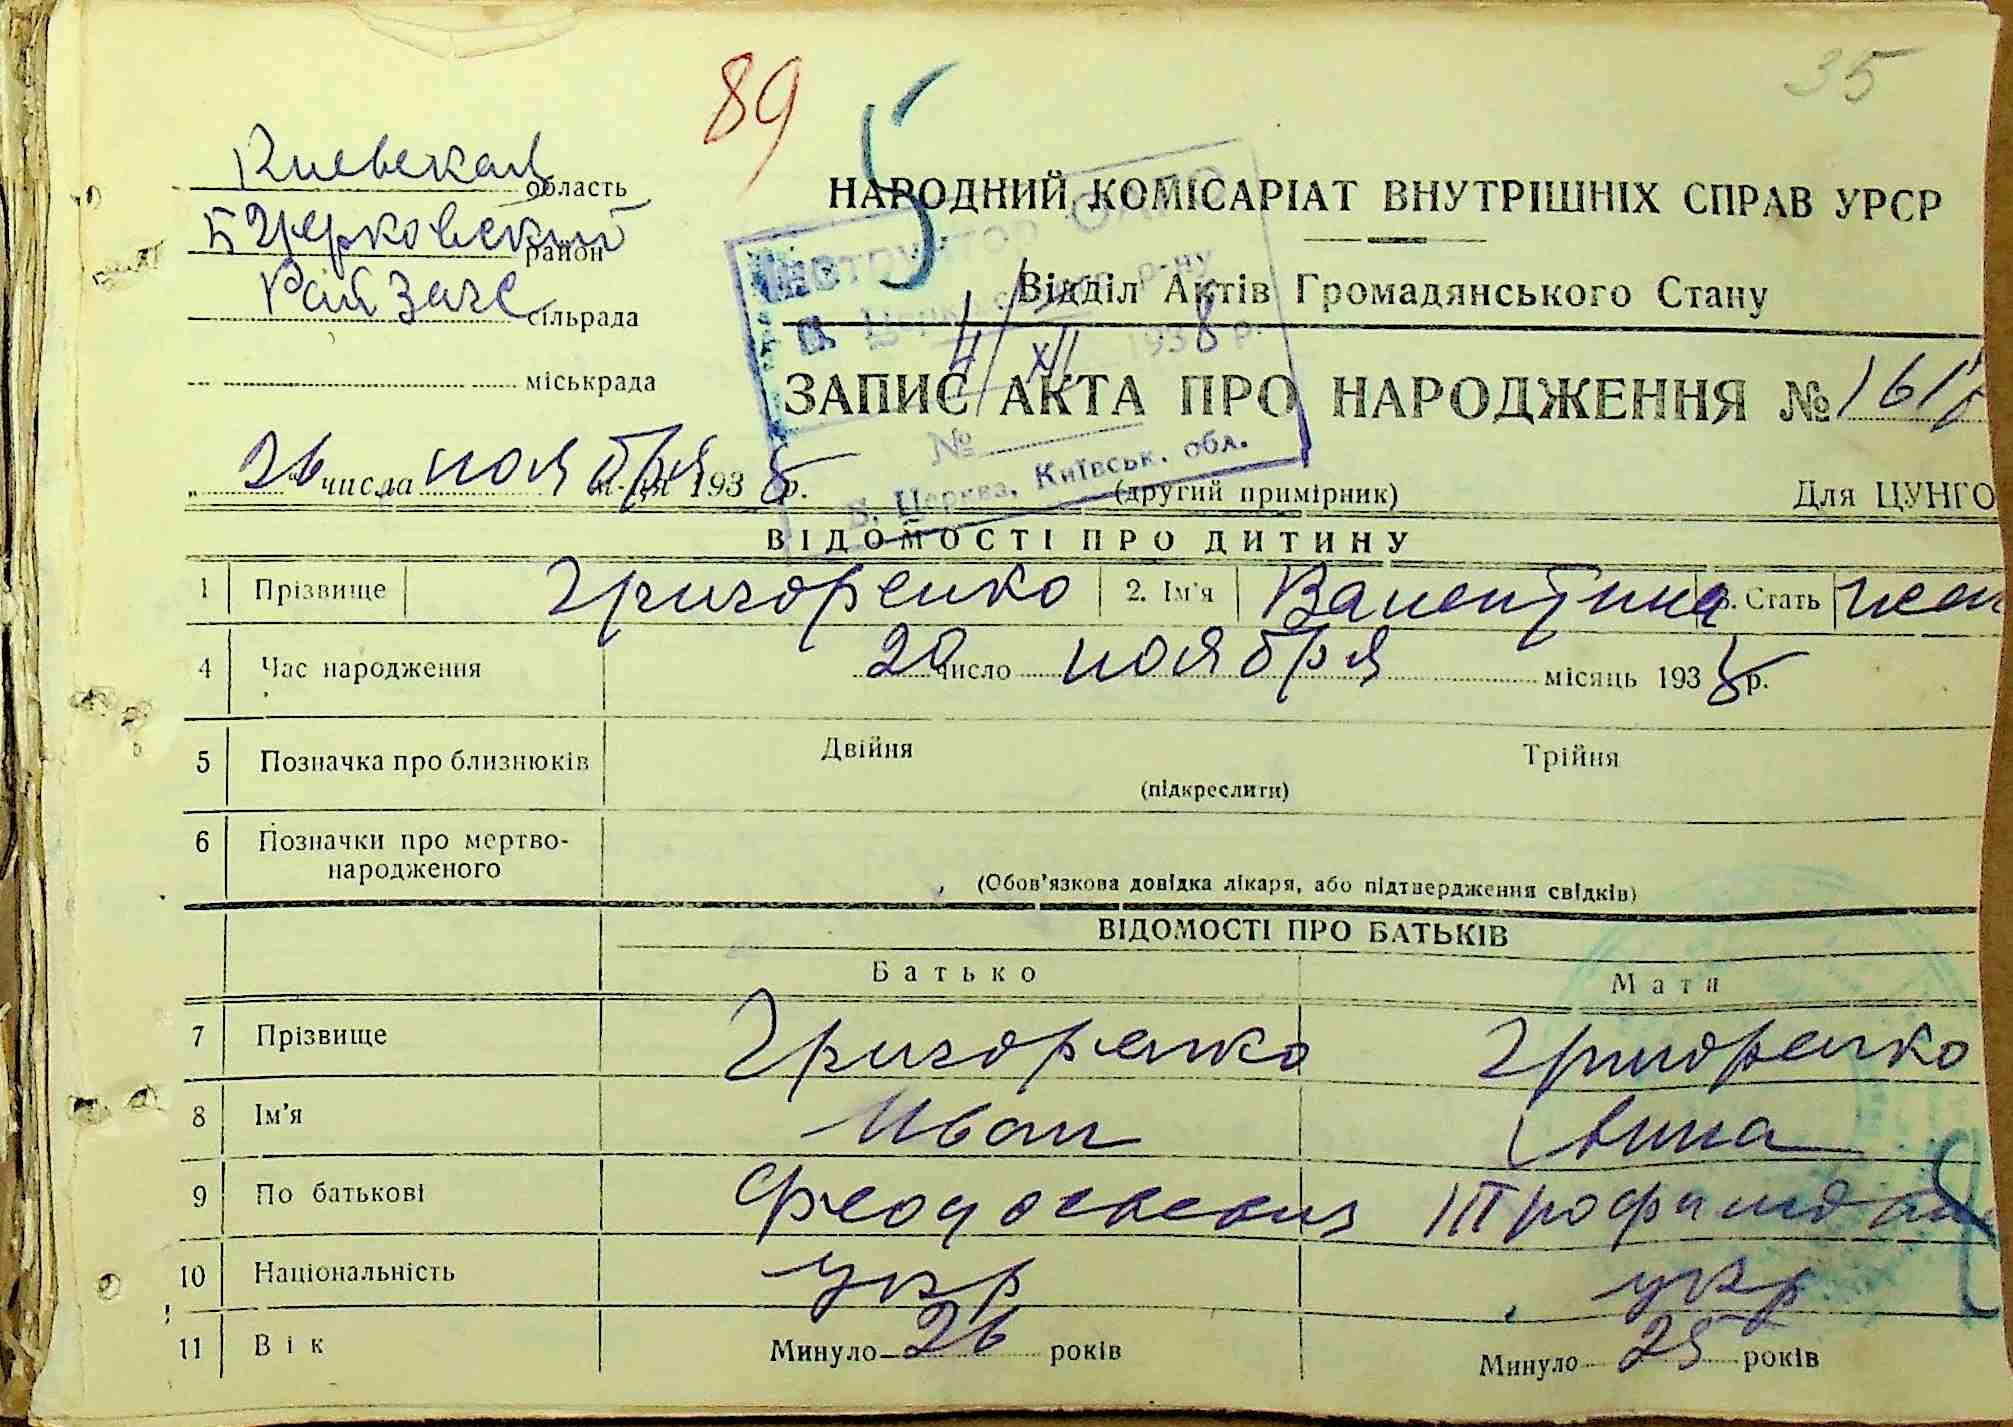 35
89
5
Киевская область
Б Церковский район
РайЗагс сільрада
міськрада
НАРОДНИЙ КОМІСАРІАТ ВНУТРІШНІХ СПРАВ УРСР
Відділ Актів Громадянського Стану
ІНСТРУКТОР
Б. Церк р-ну
4/XII 1938 р.
№
Б. Церква, Київськ. обл.
ЗАПИС АКТА ПРО НАРОДЖЕННЯ №
„ 26 " числа ноября м-ця 1938 р.
(другий примірник)
Для ЦУНГО
ВІДОМОСТІ ПРО ДИТИНУ
1 Прізвище Григоренко 2. Ім'я Валентина 3. Стать жен
4 Час народження 20 число ноября місяць 1938 р.
5 Позначка про близнюків Двійня Трійня
(підкреслити)
6 Позначки про мертво-
народженого
(Обов'язкова довідка лікаря, або підтвердження свідків)
ВІДОМОСТІ ПРО БАТЬКІВ
Батько Мати
7 Прізвище Григоренко Григоренко
8 Ім'я Иван Анна
9 По батькові Феодосьевич
10 Національність укр укр
11 Вік Минуло 26 років Минуло 25 років